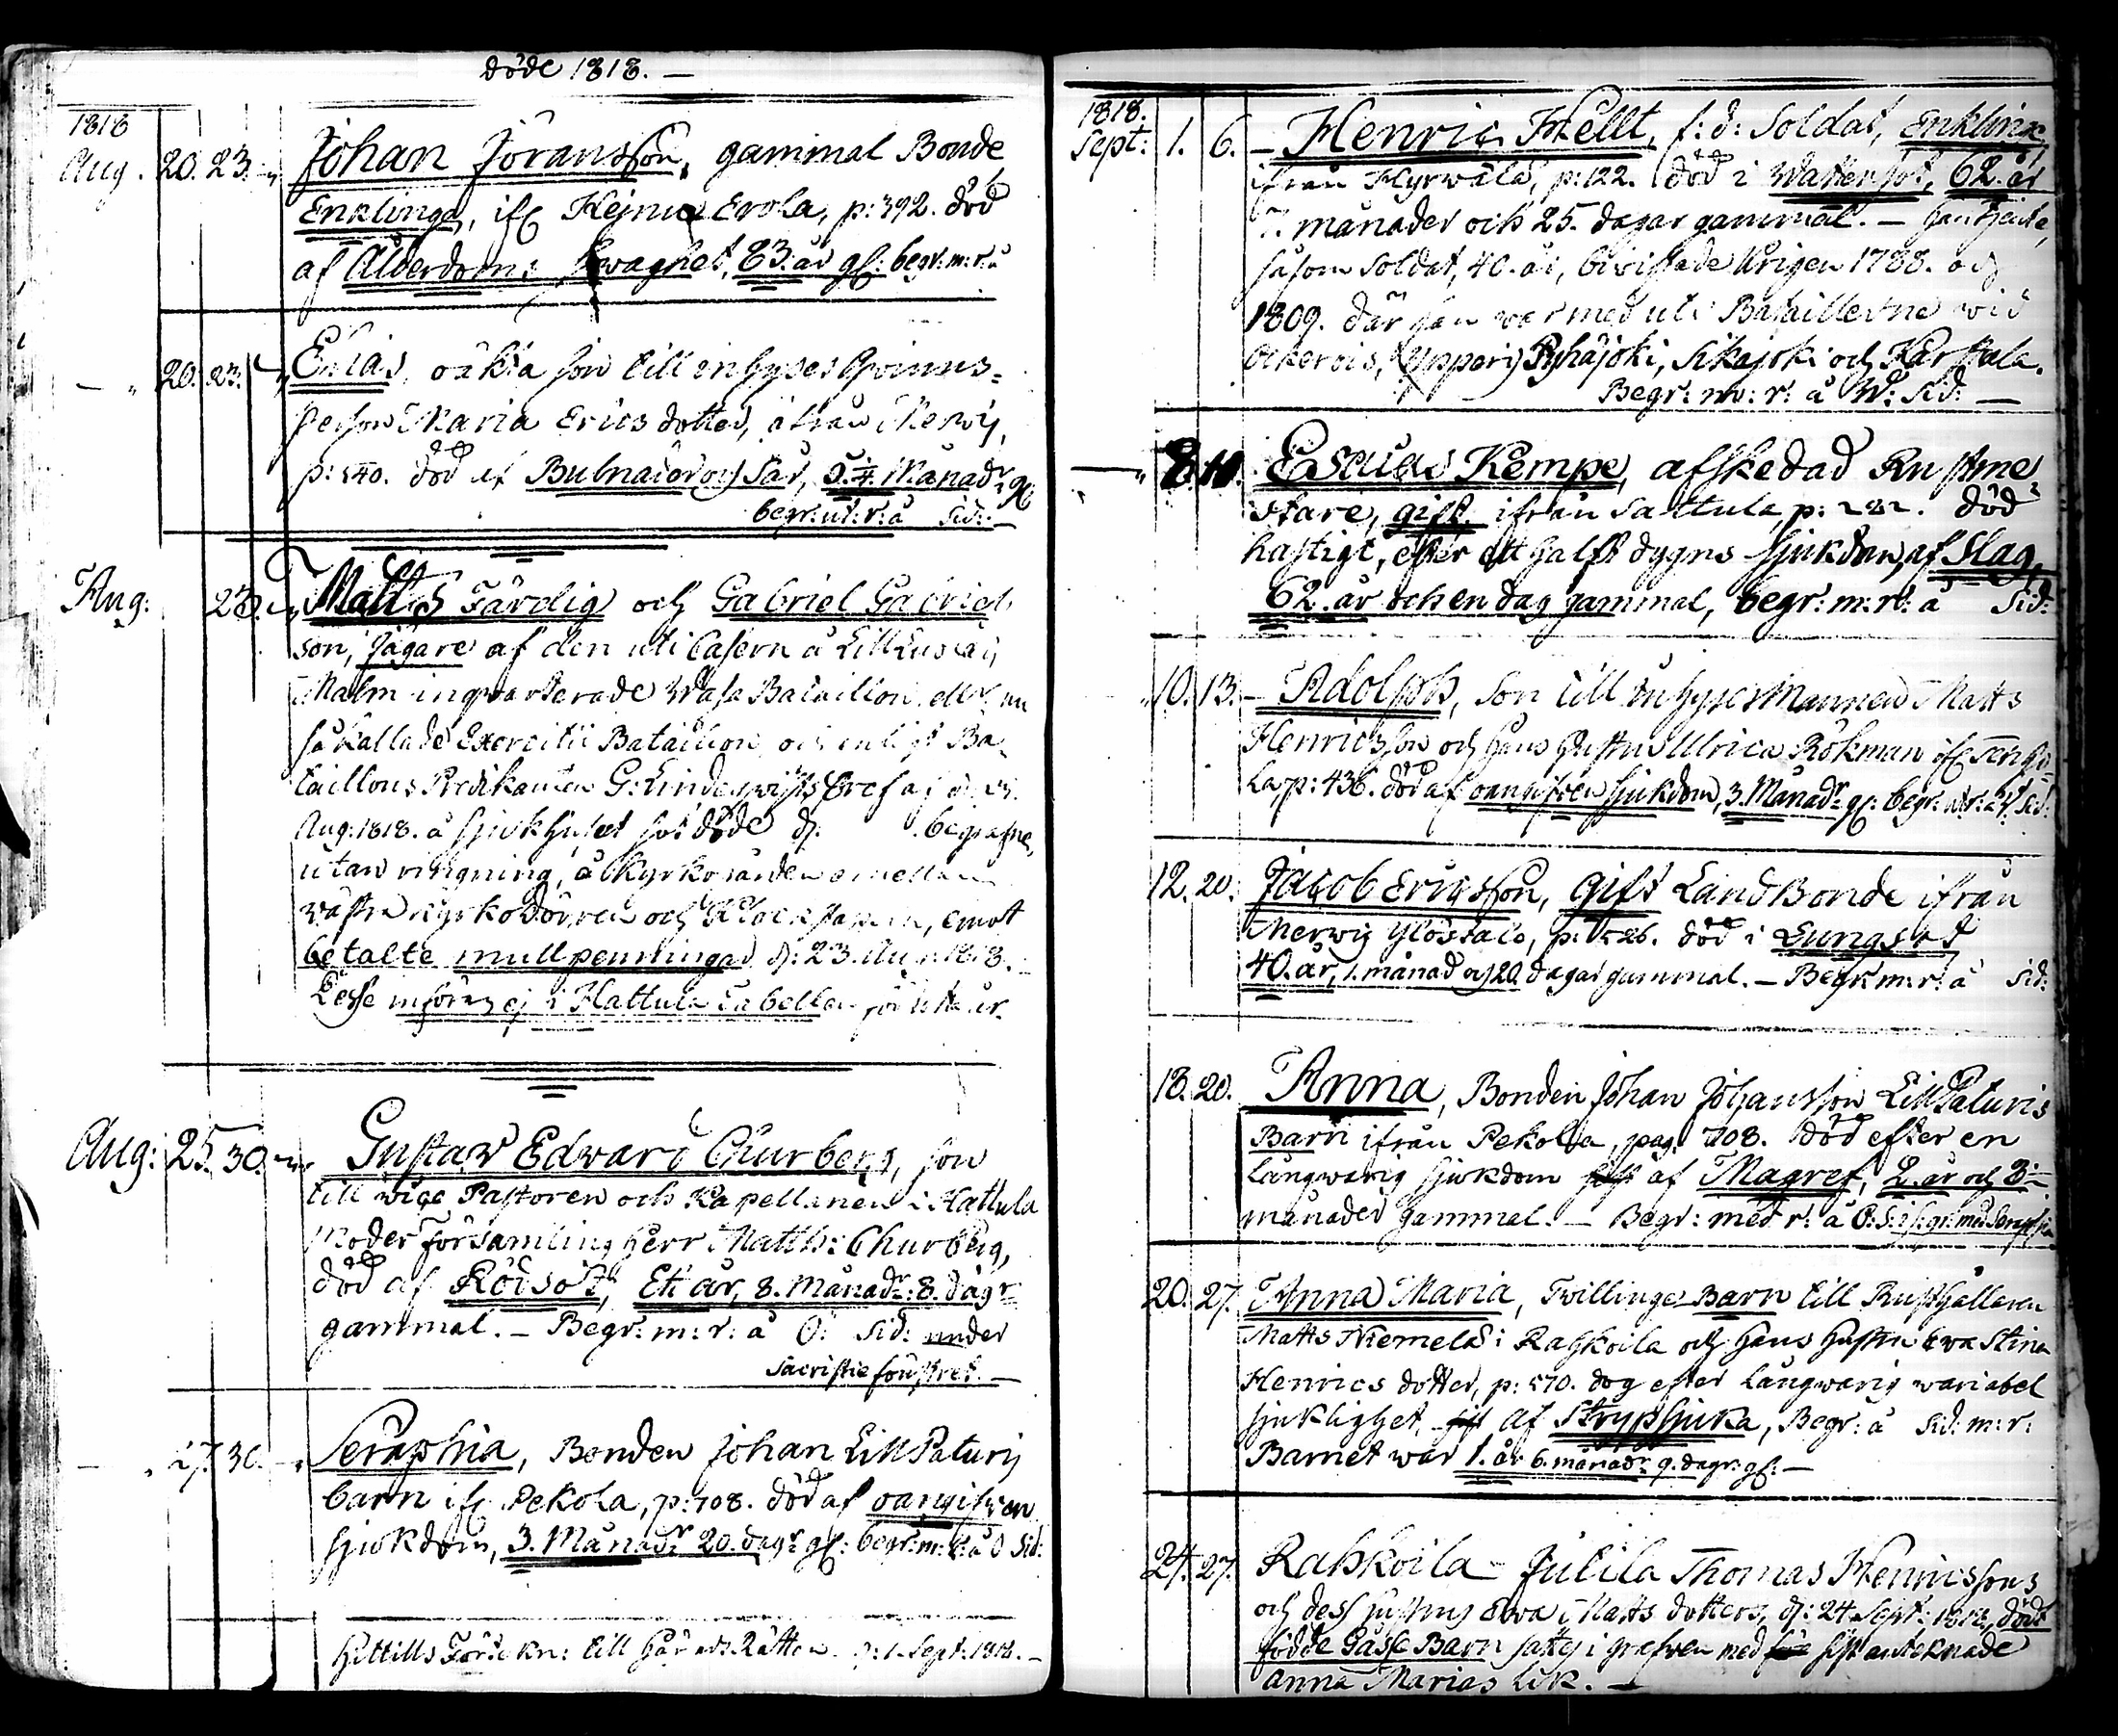 döde 1818. —
1818
Aug. 20. 23. Johan Jöransson, gammal Bonde
Enklinge, ifr Erola, p: 392. död
af Ålderdoms Swaghet, 83. år gl: begr: m: r: å
20. 23. Elias, oäkta son till inhyses Qwinns-
person Maria Ericsdotter, ifrån Merwi,
p: 540. död af Bulnader och Sår, Månadr gl:
begr: ut: r: å Sid: —
Aug: 23. Matts Färdig och Gabriel Gabriel
son, Jägare af den uti Casern å
Malm inqwarterade Wasa Bataillon, eller nu
så kallade Exercitii Bataillon, och enligt Ba-
taillons Predikanten G: bref af d: 23.
Aug: 1818. å sjukhuset döde begrafne
utan ringning, å Kyrkogården emellan
Wästra Kyrkodörren och Klockstapeln, emot
betalte mullpenningar d: 23. Aug: 1818.
Desse införas ej i Hattula Tabellen för detta år.
Aug: 25. 30. Gustaw Edward Churberg, son
till wice Pastoren och Kapellanen i Hattula
Moder Församling Herr Matth: Churberg,
död af Rödsot, Ett år, 8. Månadr: 8. dagr
gammal. — Begr: m: r: å Ö: Sid: under
Sacristie fönstret. —
27. 30. Seraphia, Bonden Johan Lill Paturis
barn ifr Pekola, p: 708. död af oangifwen
sjukdom, 3. Månadr 20. dagr gl: begr: m: r: å Ö Sid:
Hittills Förtekn: till Härads Rätten d: 1. Sept: 1818. —
1818.
Sept: 1. 6. — Henric Hellt, f: d: Soldat, Enkling
ifrån Hyrwälä, p: 122. död i Wattensot, 62. år
7. månader och 25. dagar gammal. — han tjente,
såsom Soldat, 40. år, biwistade Krigen 1788. och
1809. där han war med uti Bataillerne wid
(Yppari) Pyhäjoki, Sikajoki och
Begr: m: r: å W: Sid: —
8. 10. Esaias Kempe, afskedad Rustme-
stare, gift, ifrån Sattula, p: 282. död
hastigt, efter ett halft dygns sjukdom, af Slag,
62. år och en dag gammal, begr: m: r: å Sid:
10. 13. — Adolph, Son till Inhyses Mannen Matts
Henricsson och hans Hustru Ulrica Rökman ifr
la, p: 436. död af oangifwen sjukdom, 3. Månadr gl: begr: m: r: å W. Sid:
12. 20. Jacob Ericsson, gift LandBonde ifrån
Merwi Ylöstalo, p: 526. död i Lungsot
40. år, 1. månad och 20. dagar gammal. — Begr: m: r: å Sid:
18. 20. Anna, Bonden Johan Johansson Lill Paturis
Barn ifrån Pekola, pag. 708. död efter en
långwarig sjukdom af Magref, 2. år och 3
månader gammal. — Begr: med r: å Ö: S:
20. 27. Anna Maria, Twillinge Barn till Rusthållaren
Matts Niemelä i Rahkoila och hans hustru Ewa Stina
Henrics dotter, p: 570. dog efter långwarig wariabel
sjuklighet af Strypsjuka, Begr: å Sid: m: r:
Barnet war 1. år 6. månadr 9. dagr: gl: —
24. 27. Rahkoila — Jutila Thomas Henricssons
och dess hustrus Ewa Matts dotters, d: 24 Sept: 1818, död
födde Gosse Barn sattes i grafwen med sist antecknade
Anna Marias Lik. —